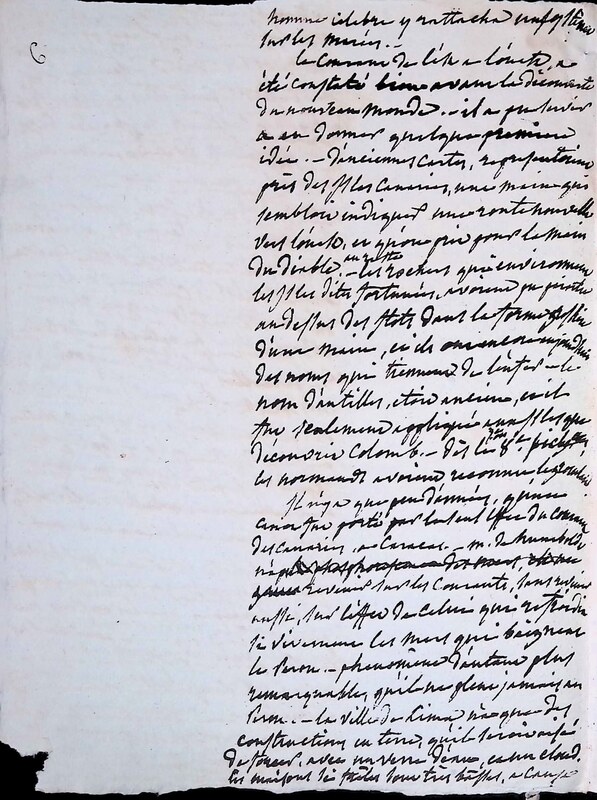 6
homme célebre y rattacha un système
sur les marées. –
le Courant de l'Est a l'ouest, a
été constaté bien avant la découverte
du nouveau monde. – il a pu servir
a en donner quelque premiere
idée. – d'anciennes cartes, representoient
près des Isles Canaries, une main qui
sembloit indiquer une route nouvelle
vers l'ouest, et qu'on prit pour la main
du diable. – au reste les rochers qui environnent
les Isles dites fortunées, avoient pu paroitre
au dessus des flots dans la forme
d'une main, et ils ont encore aujourd'hui
des noms qui tiennent de l'enfer – le
nom d'antilles, étoit ancien, et il
fut seulement appliqué aux Isles que
decouvrit Colomb. – dès le 8e siècle,
les normands avoient reconnu le
Il n'y a que peu d'années, qu'un
canot fut porté par le seul effet du Courant
des canaries, a Caracas. – m. de humboldt
revenir sur les Courants, sans revenir
aussi, sur l'effet de celui qui refroidit
si vivement les mers qui baignent
le Perou. – phenomène d'autant plus
remarquable, qu'il ne pleut jamais au
Perou. – la ville de Lima n'a que des
constructions en terre, qu'il seroit aisé
de forcer, avec un verre d'eau, et un clou.
les maisons très basses, a cause